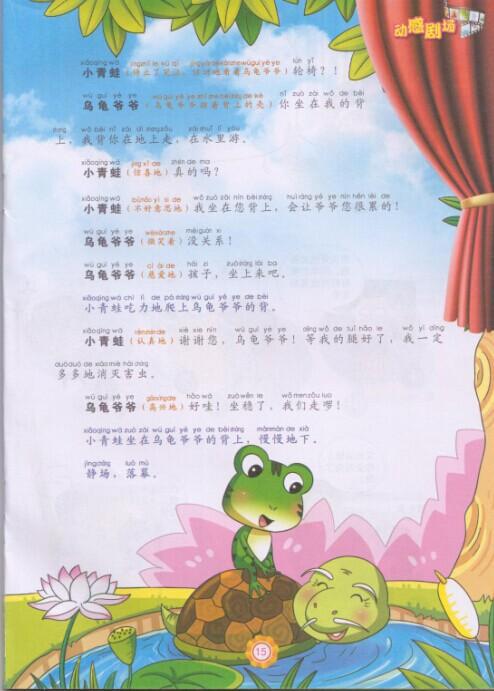 动感剧场
xiǎo qīng wā tíng zhǐ le kū qì jīng yà de kàn zhe wū guī yé ye lún yǐ
小青蛙（停止了哭泣，惊讶地看着乌龟爷爷）轮椅？！
wū guī yé ye wū guī yé ye zhǐ zhe bèi shàng de ké nǐ zuò zài wǒ de bèi
乌龟爷爷（乌龟爷爷指着背上的壳）你坐在我的背
shàng wǒ bēi nǐ zài dì shàng zǒu zài shuǐ lǐ yóu
上，我背你在地上走，在水里游。
xiǎo qīng wā jīng xǐ de zhēn de ma
小青蛙（惊喜地）真的吗？
xiǎo qīng wā bù hǎo yì si de wǒ zuò zài nín bèi shàng huì ràng yé ye nín hěn lèi de
小青蛙（不好意思地）我坐在您背上，会让爷爷您很累的！
wū guī yé ye wēi xiào zhe méi guān xi
乌龟爷爷（微笑着）没关系！
wū guī yé ye cí ài de hái zi zuò shàng lái ba
乌龟爷爷（慈爱地）孩子，坐上来吧。
xiǎo qīng wā chī lì de pá shàng wū guī yé ye de bèi
小青蛙吃力地爬上乌龟爷爷的背。
xiǎo qīng wā rèn zhēn de xiè xie nín wū guī yé ye děng wǒ de tuǐ hǎo le wǒ yí dìng
小青蛙（认真地）谢谢您，乌龟爷爷！等我的腿好了，我一定
duō duō de xiāo miè hài chóng
多多地消灭害虫。
wū guī yé ye gāo xìng de hǎo wā zuò wěn le wǒ men zǒu luo
乌龟爷爷（高兴地）好哇！坐稳了，我们走啰！
xiǎo qīng wā zuò zài wū guī yé ye de bèi shàng màn màn de xià
小青蛙坐在乌龟爷爷的背上，慢慢地下。
jìng chǎng luò mù
静场，落幕。
15